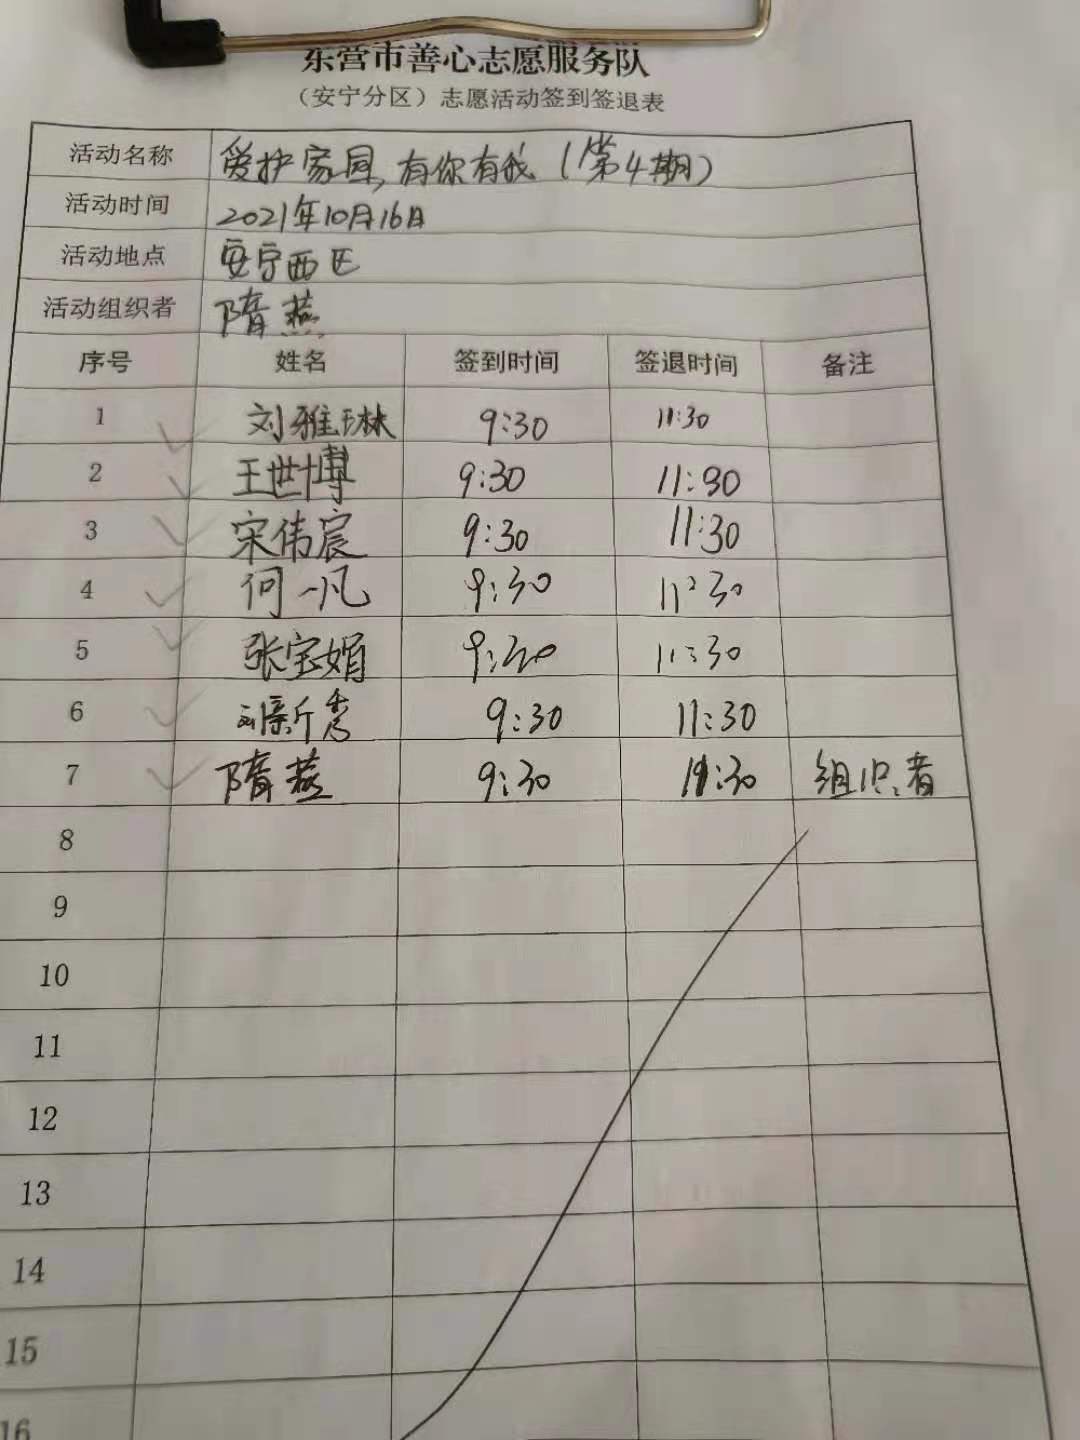 东营市善心志愿服务队
（安宁分区）志愿活动签到签退表
活动名称 爱护家园,有你有我（第4期）
活动时间 2021年10月16日
活动地点 安宁西区
活动组织者 隋燕
序号 姓名 签到时间 签退时间 备注
1 刘雅琳 9:30 11:30
2 王世博 9:30 11:30
3 宋伟宸 9:30 11:30
4 何一凡 9:30 11:30
5 张宝娟 9:30 11:30
6 刘新秀 9:30 11:30
7 隋燕 9:30 11:30 组织者
8
9
10
11
12
13
14
15
16